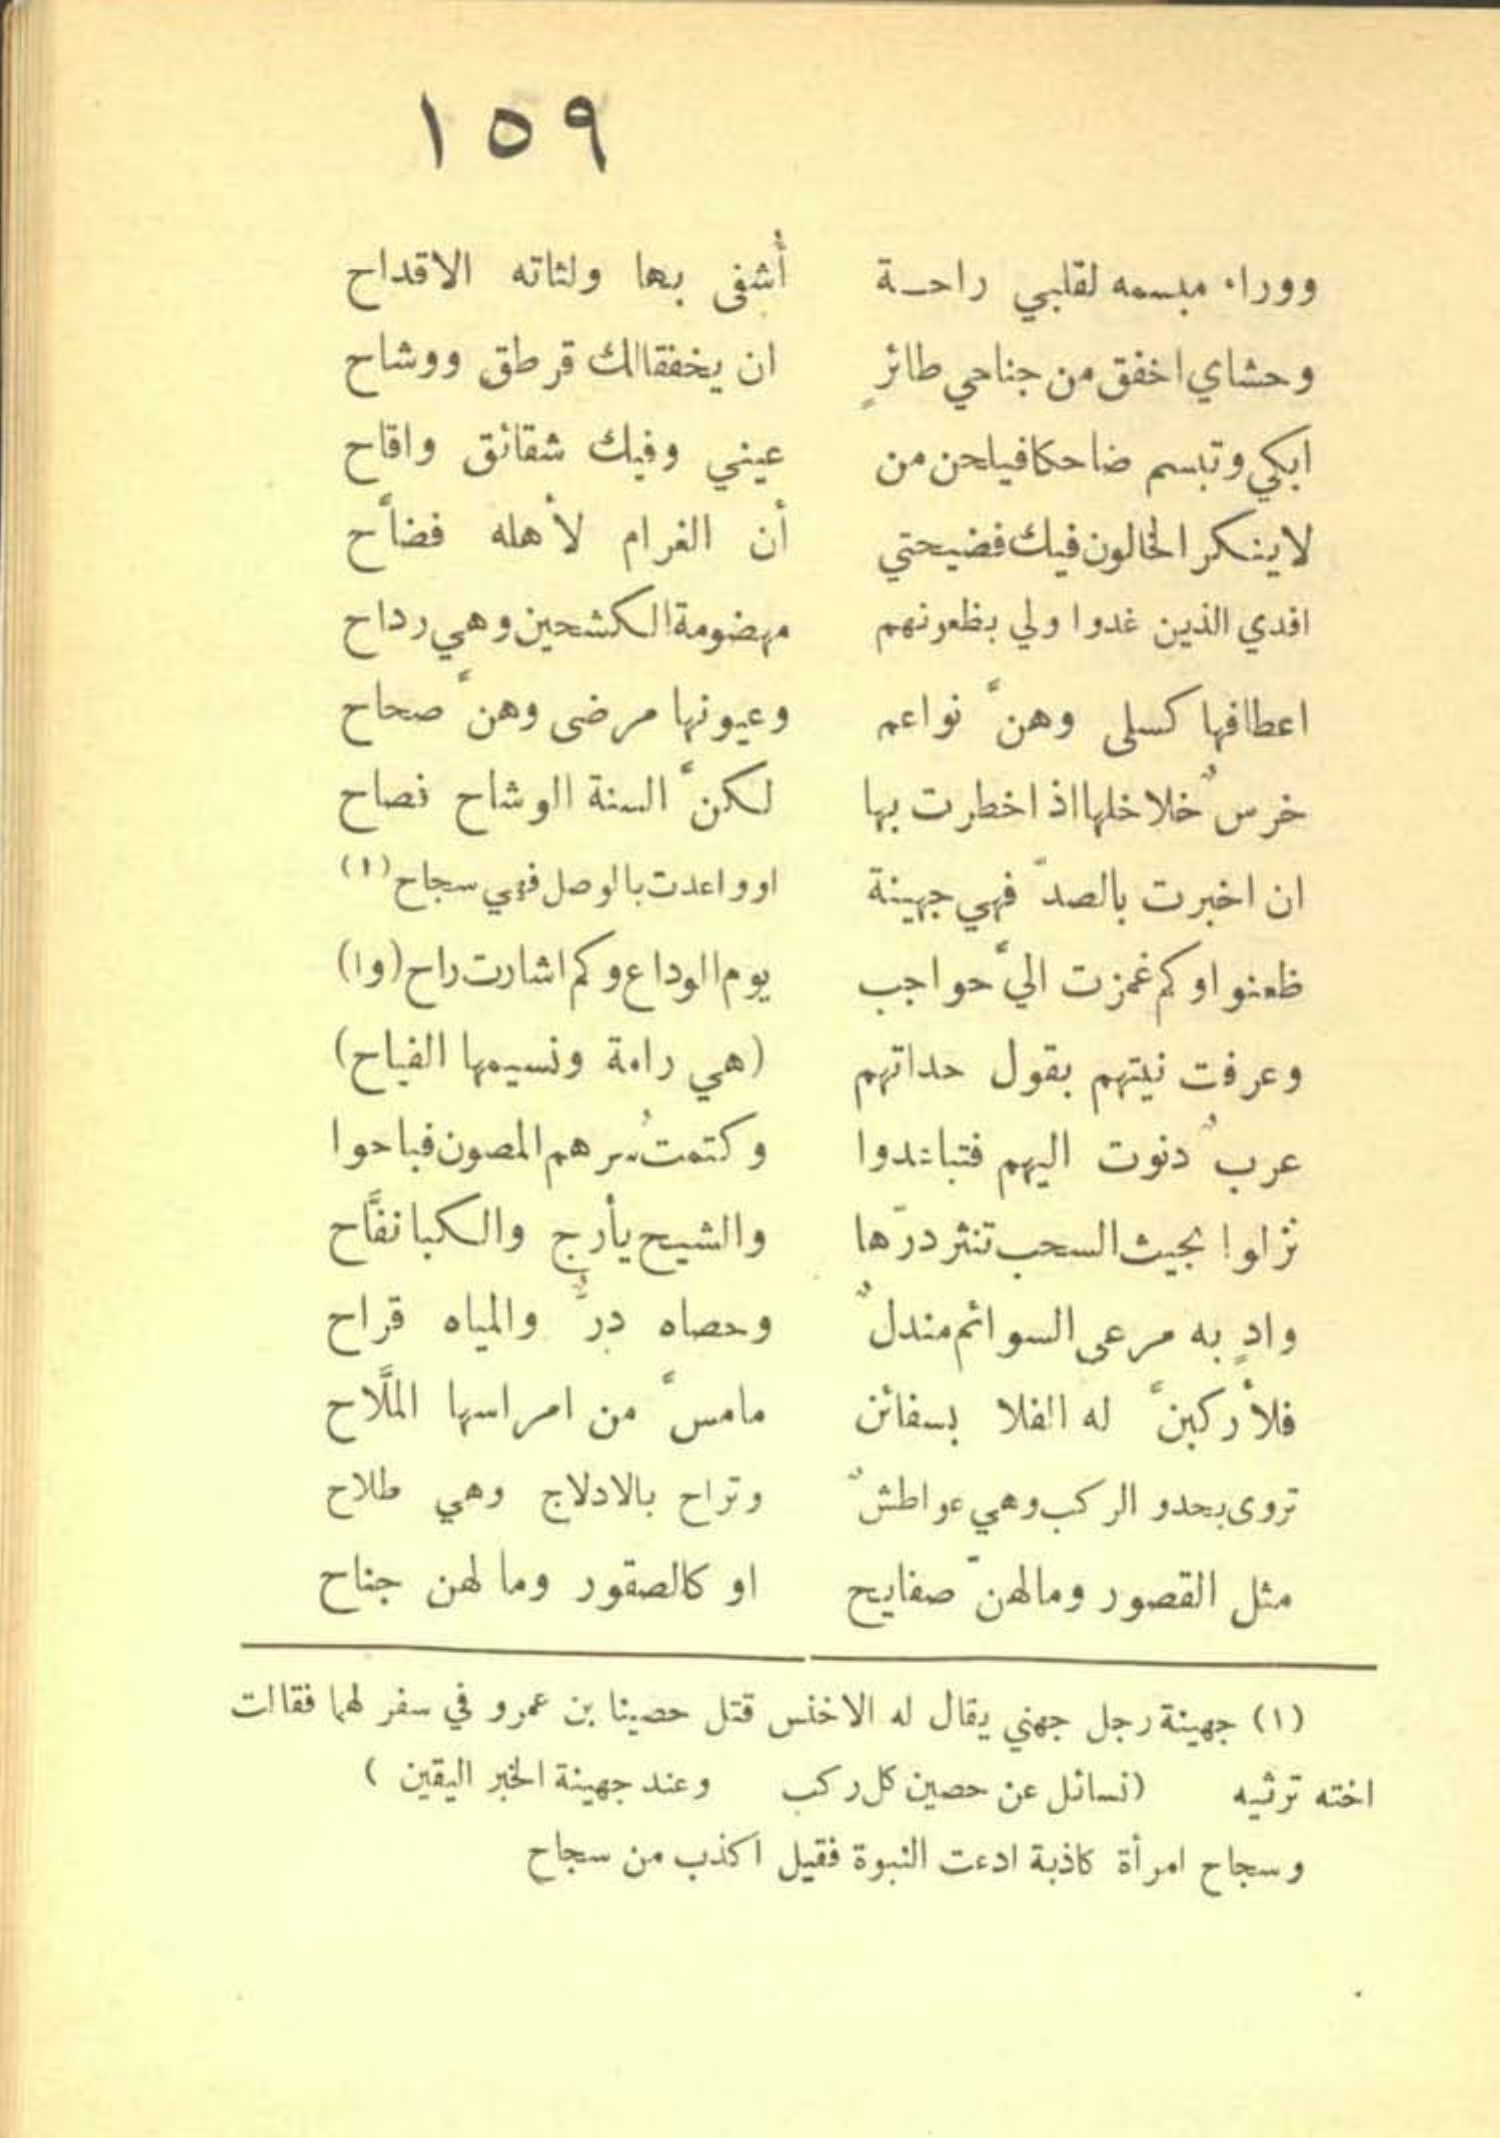 ١٥٩
ووراء مبسمه لقلبي راحـة أُشفى بها ولثاته الاقداح
وحشاي اخفق من جناحي طائرٍ ان يخفقا لك قرطق ووشاح
ابكي وتبسم ضاحكا فيلحن من عيني وفيك شقائق واقاح
لا ينكر الخالون فيك فضيحتي أن الغرام لأهله فضاَّح
افدي الذين غدوا ولي بظعونهم مهضومة الكشحين وهي رداح
اعطافها كسلى وهنَّ نواعم وعيونها مرضى وهنَّ صحاح
خرسٌ خلاخلها اذا خطرت بها لكنَّ السنة الوشاح نصاح
ان اخبرت بالصدّ فهي جهينة او واعدت بالوصل فهي سجاح (١)
ظعنوا وكم غمزت اليَّ حواجب يوم الوداع وكم اشارت راح (وا)
وعرفت نيتهم بقول حداتهم (هي رامة ونسيمها الفياح)
عربٌ دنوت اليهم فتباعدوا وكتمتُ سرهم المصون فباحوا
نزلوا بحيث السحب تنثر درّها والشيح يأرج والكبا نفَّاح
وادٍ به مرعى السوائم مندلٌ وحصاه درٌّ والمياه قراح
فلأركبنَّ له الفلا بسفائن مامسَّ من امراسها الملَّاح
تروى بحدو الركب وهي عواطشٌ وتراح بالادلاج وهي طلاح
مثل القصور ومالهنّ صفايح او كالصقور وما لهن جناح
(١) جهينة رجل جهني يقال له الاخنس قتل حصينا بن عمرو في سفر لهما فقالت
اخته ترثيه (نسائل عن حصين كل ركب وعند جهينة الخبر اليقين )
وسجاح امرأة كاذبة ادعت النبوة فقيل اكذب من سجاح